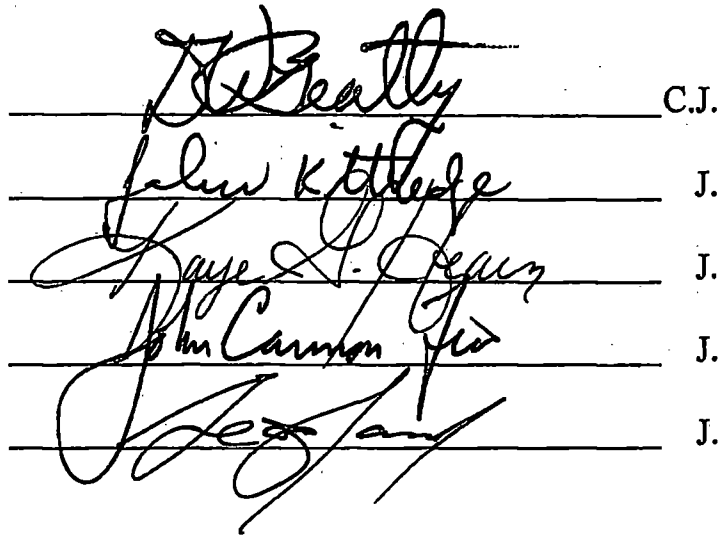 D W Beatty C.J.
John Kittredge J.
Kaye G. Hearn J.
John Cannon Few J.
J.